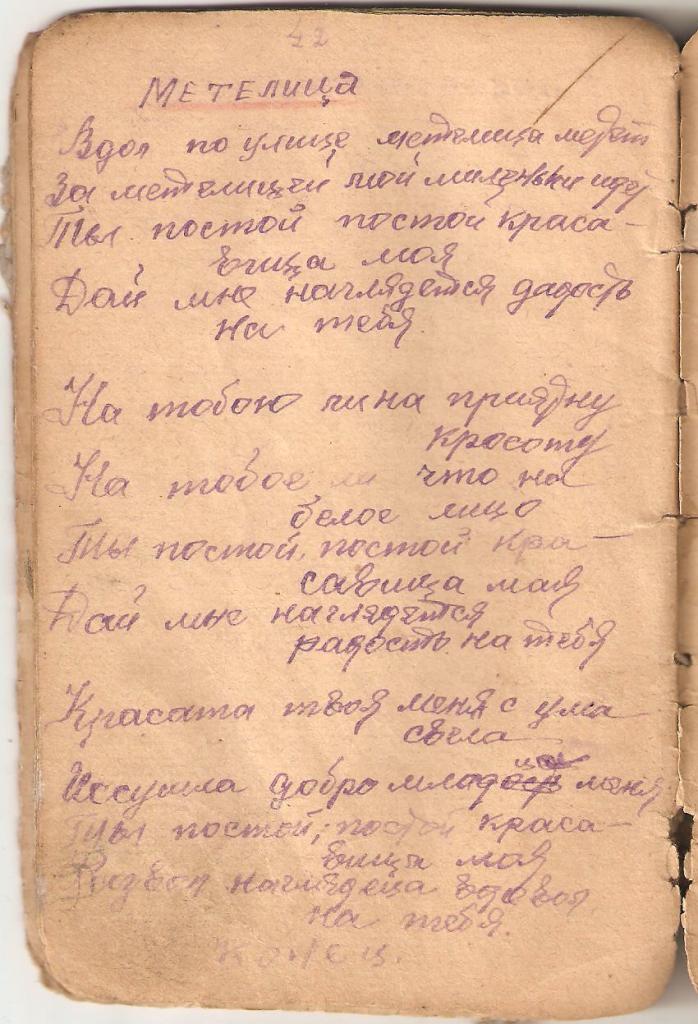 42
МЕТЕЛИЦА
Вдол по улице метелица метет
За метелицей мой миленьки идет
Ты постой постой краса-
вица моя
Дай мне наглядется дадость
на тебя
На тобою ли на приядну
красоту
На тобое ли что на
белое лицо
Ты постой, постой кра-
савица мая
Дай мне наглядется
радость на тебя
Красата твоя меня с ума
свела
Иссушила добро молодца меня
Ты постой, постой краса-
вица моя
наглядеца вдовол
на тебя.
Конец.